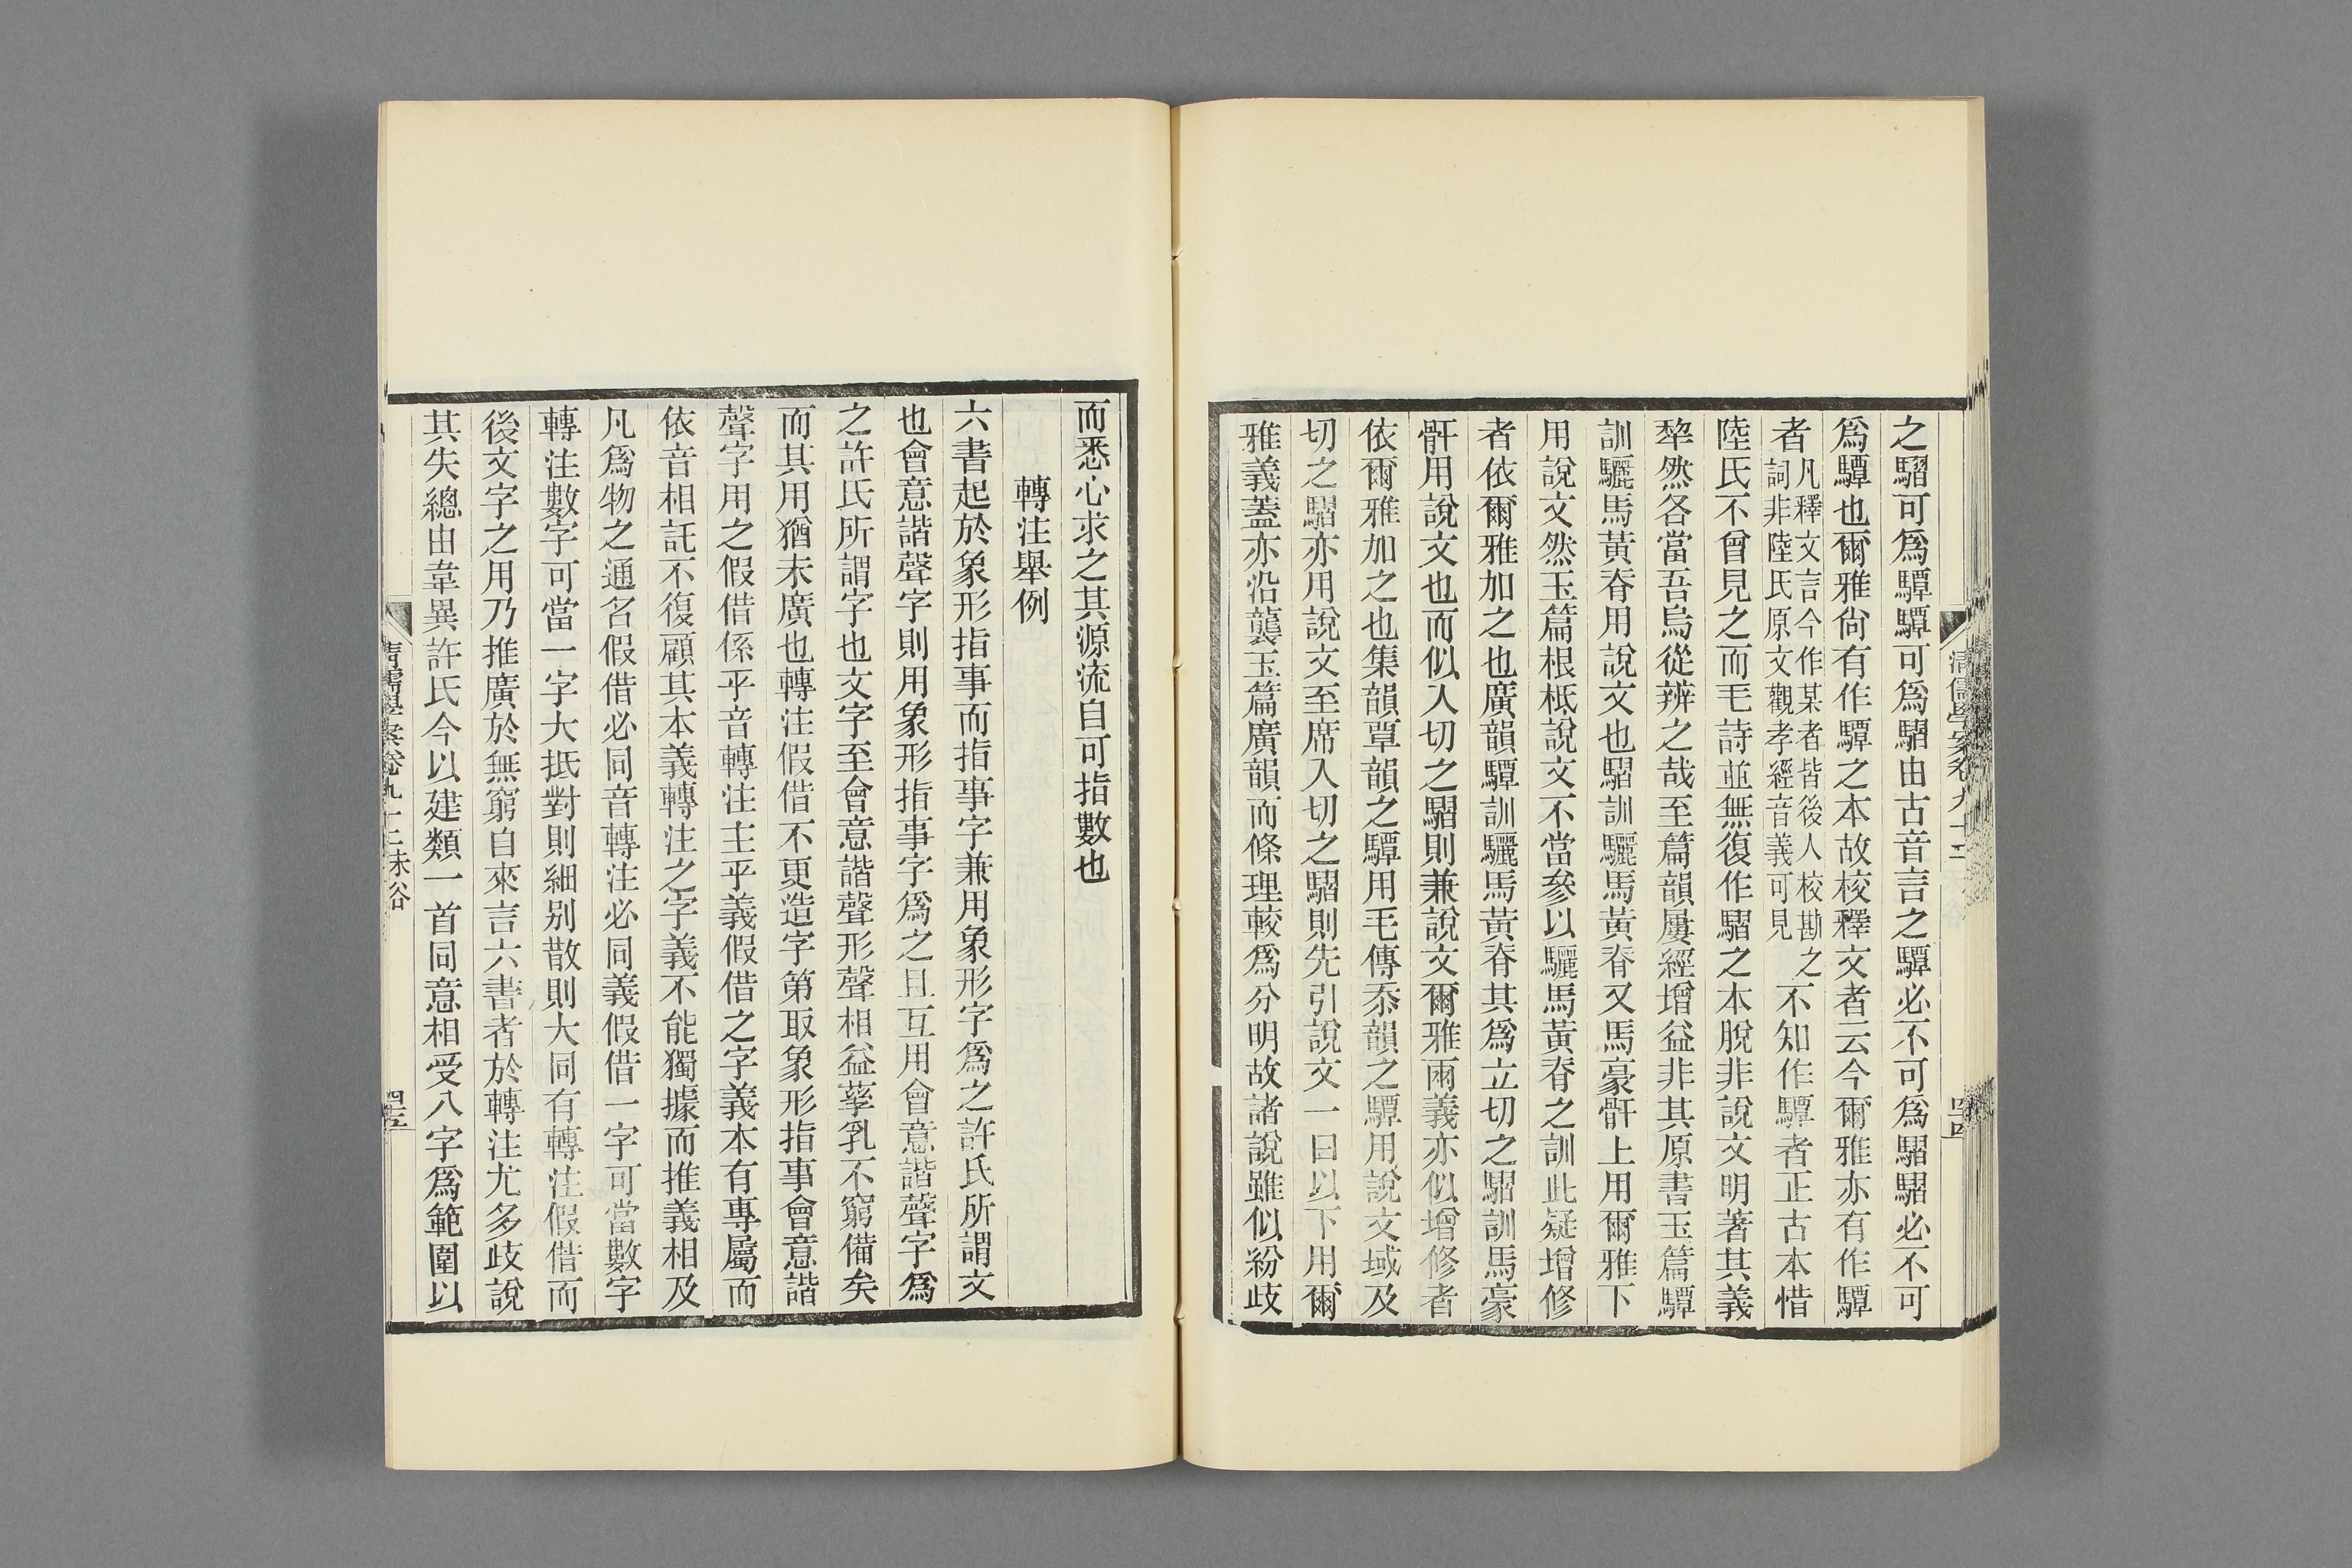 之騽可爲驔驔可爲騽由古音言之驔必不可爲騽騽必不可
爲驔也爾雅尙有作驔之本故校釋文者云今爾雅亦有作驔
者凡釋文言今作某者皆後人校勘之詞非陸氏原文觀孝經音義可見不知作驔者正古本惜
陸氏不曾見之而毛詩並無復作騽之本脫非說文明著其義
犂然各當吾烏從辨之哉至篇韻屢經增益非其原書玉篇驔
訓驪馬黃脊用說文也騽訓驪馬黃脊又馬豪骭上用爾雅下
用說文然玉篇根柢說文不當參以驪馬黃脊之訓此疑增修
者依爾雅加之也廣韻驔訓驪馬黃脊其爲立切之騽訓馬豪
骭用說文也而似入切之騽則兼說文爾雅兩義亦似增修者
依爾雅加之也集韻覃韻之驔用毛傳忝韻之驔用說文域及
切之騽亦用說文至席入切之騽則先引說文一曰以下用爾
雅義蓋亦沿襲玉篇廣韻而條理較爲分明故諸說雖似紛歧
清儒學案卷九十二
而悉心求之其源流自可指數也
轉注舉例
六書起於象形指事而指事字兼用象形字爲之許氏所謂文
也會意諧聲字則用象形指事字爲之且互用會意諧聲字爲
之許氏所謂字也文字至會意諧聲形聲相益孳乳不窮備矣
而其用猶未廣也轉注假借不更造字第取象形指事會意諧
聲字用之假借係乎音轉注主乎義假借之字義本有專屬而
依音相託不復顧其本義轉注之字義不能獨據而推義相及
凡爲物之通名假借必同音轉注必同義假借一字可當數字
轉注數字可當一字大抵對則細別散則大同有轉注假借而
後文字之用乃推廣於無窮自來言六書者於轉注尤多歧說
其失總由韋異許氏今以建類一首同意相受八字爲範圍以